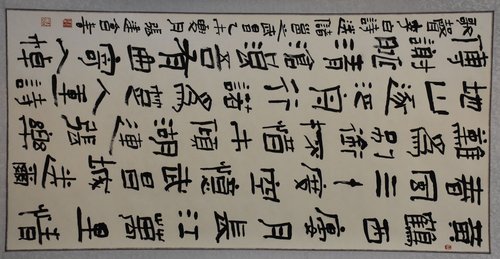 黃鶴西樓月長江萬里情
春風三十度空憶武昌城送爾
難為別銜杯惜未傾湖連張樂
地山逐泛舟行諾為楚人重詩
傳謝朓清滄浪吾有曲寄入棹
歌聲李白詩送儲邕之武昌乙未夏月張達會書